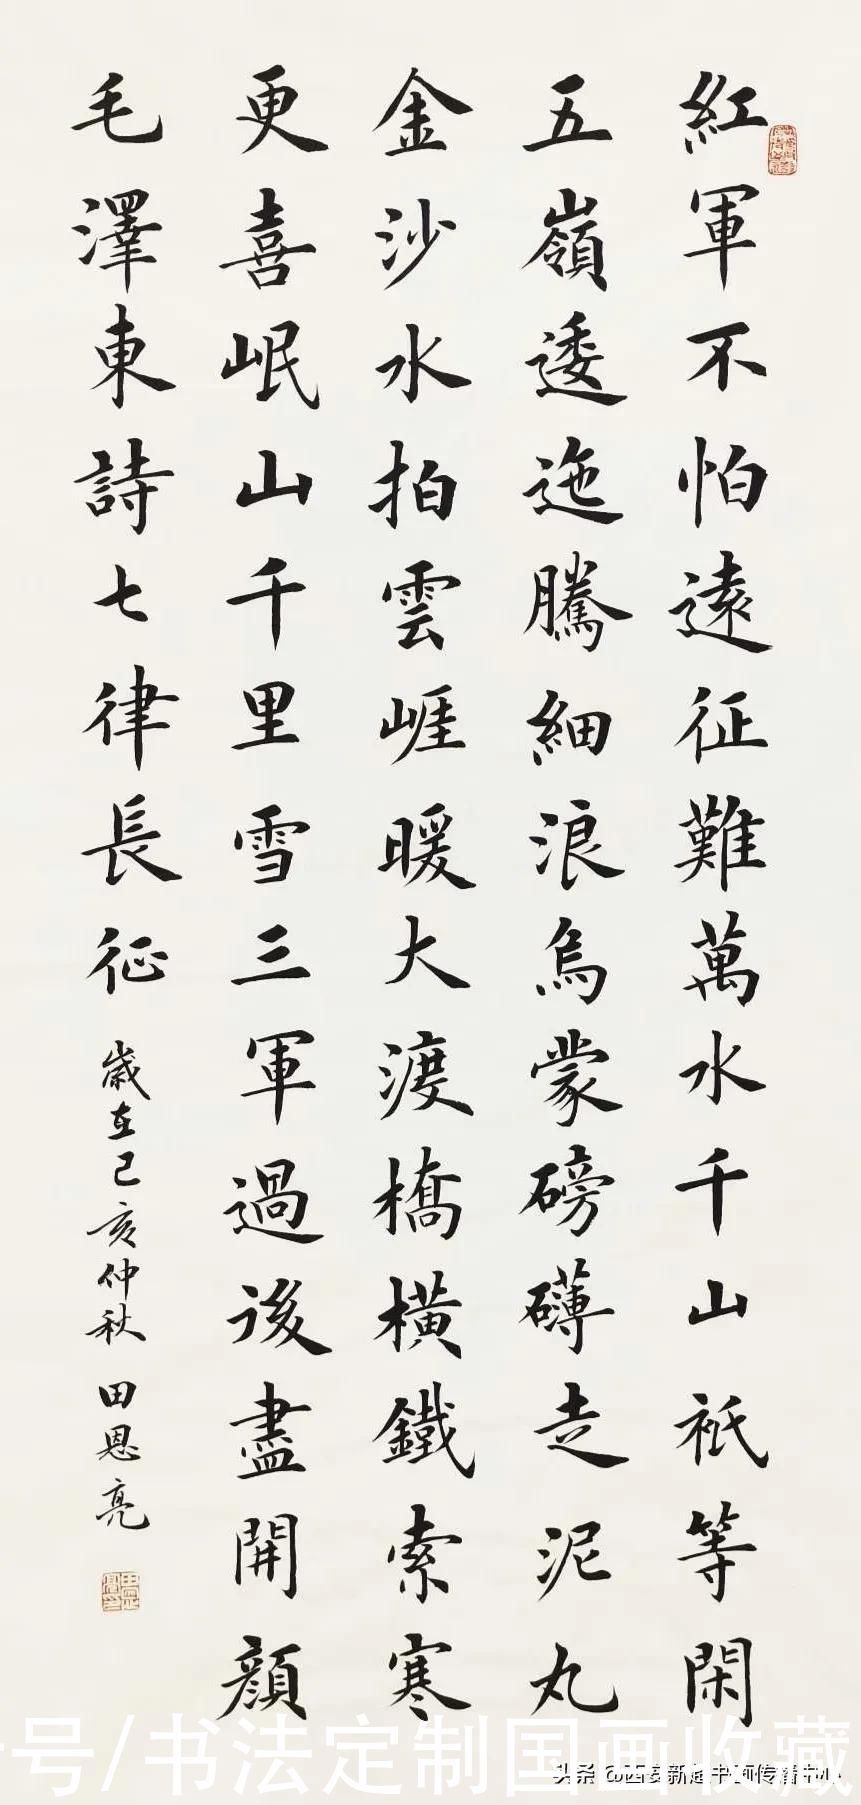 紅軍不怕遠征難萬水千山祇等閑
五嶺逶迤騰細浪烏蒙磅礴走泥丸
金沙水拍雲崕暖大渡橋橫鐵索寒
更喜岷山千里雪三軍過後盡開顔
毛澤東詩七律長征 歲在己亥仲秋 田恩亮
号/书法定制国画收藏
头条 @西安新起书画传播中心